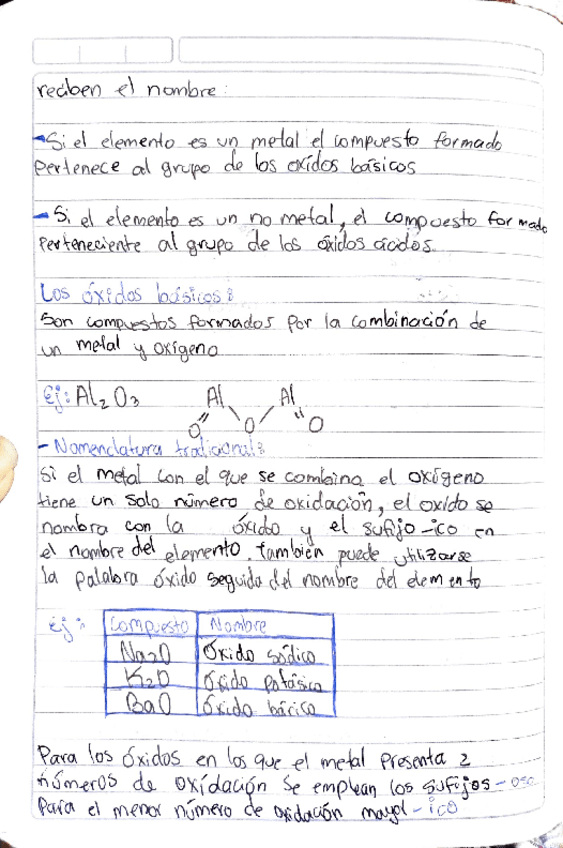 reciben el nombre:
-Si el elemento es un metal el compuesto formado
Pertenece al grupo de los oxidos básicos
- Si el elemento es un no metal, el compuesto formado
Perteneciente al grupo de los óxidos acidos.
Los óxidos básicos:
Son compuestos formados Por la combinación de
un metal y oxígeno
Ej: Al2O3
Al Al
O O O
- Nomenclatura tradicional:
Si el metal con el que se combina el oxígeno
tiene un solo número de oxidación, el oxido se
nombra con la óxido y el sufijo -ico en
el nombre del elemento. también puede utilizarse
la palabra óxido seguida del nombre del elemento
ej: Compuesto Nombre
Na2O Óxido sódico
K2O óxido potásico
BaO óxido bárico
Para los óxidos en los que el metal Presenta 2
números de oxídación Se emplean los sufijos -oso
Para el menor número de oxidación mayol -ico